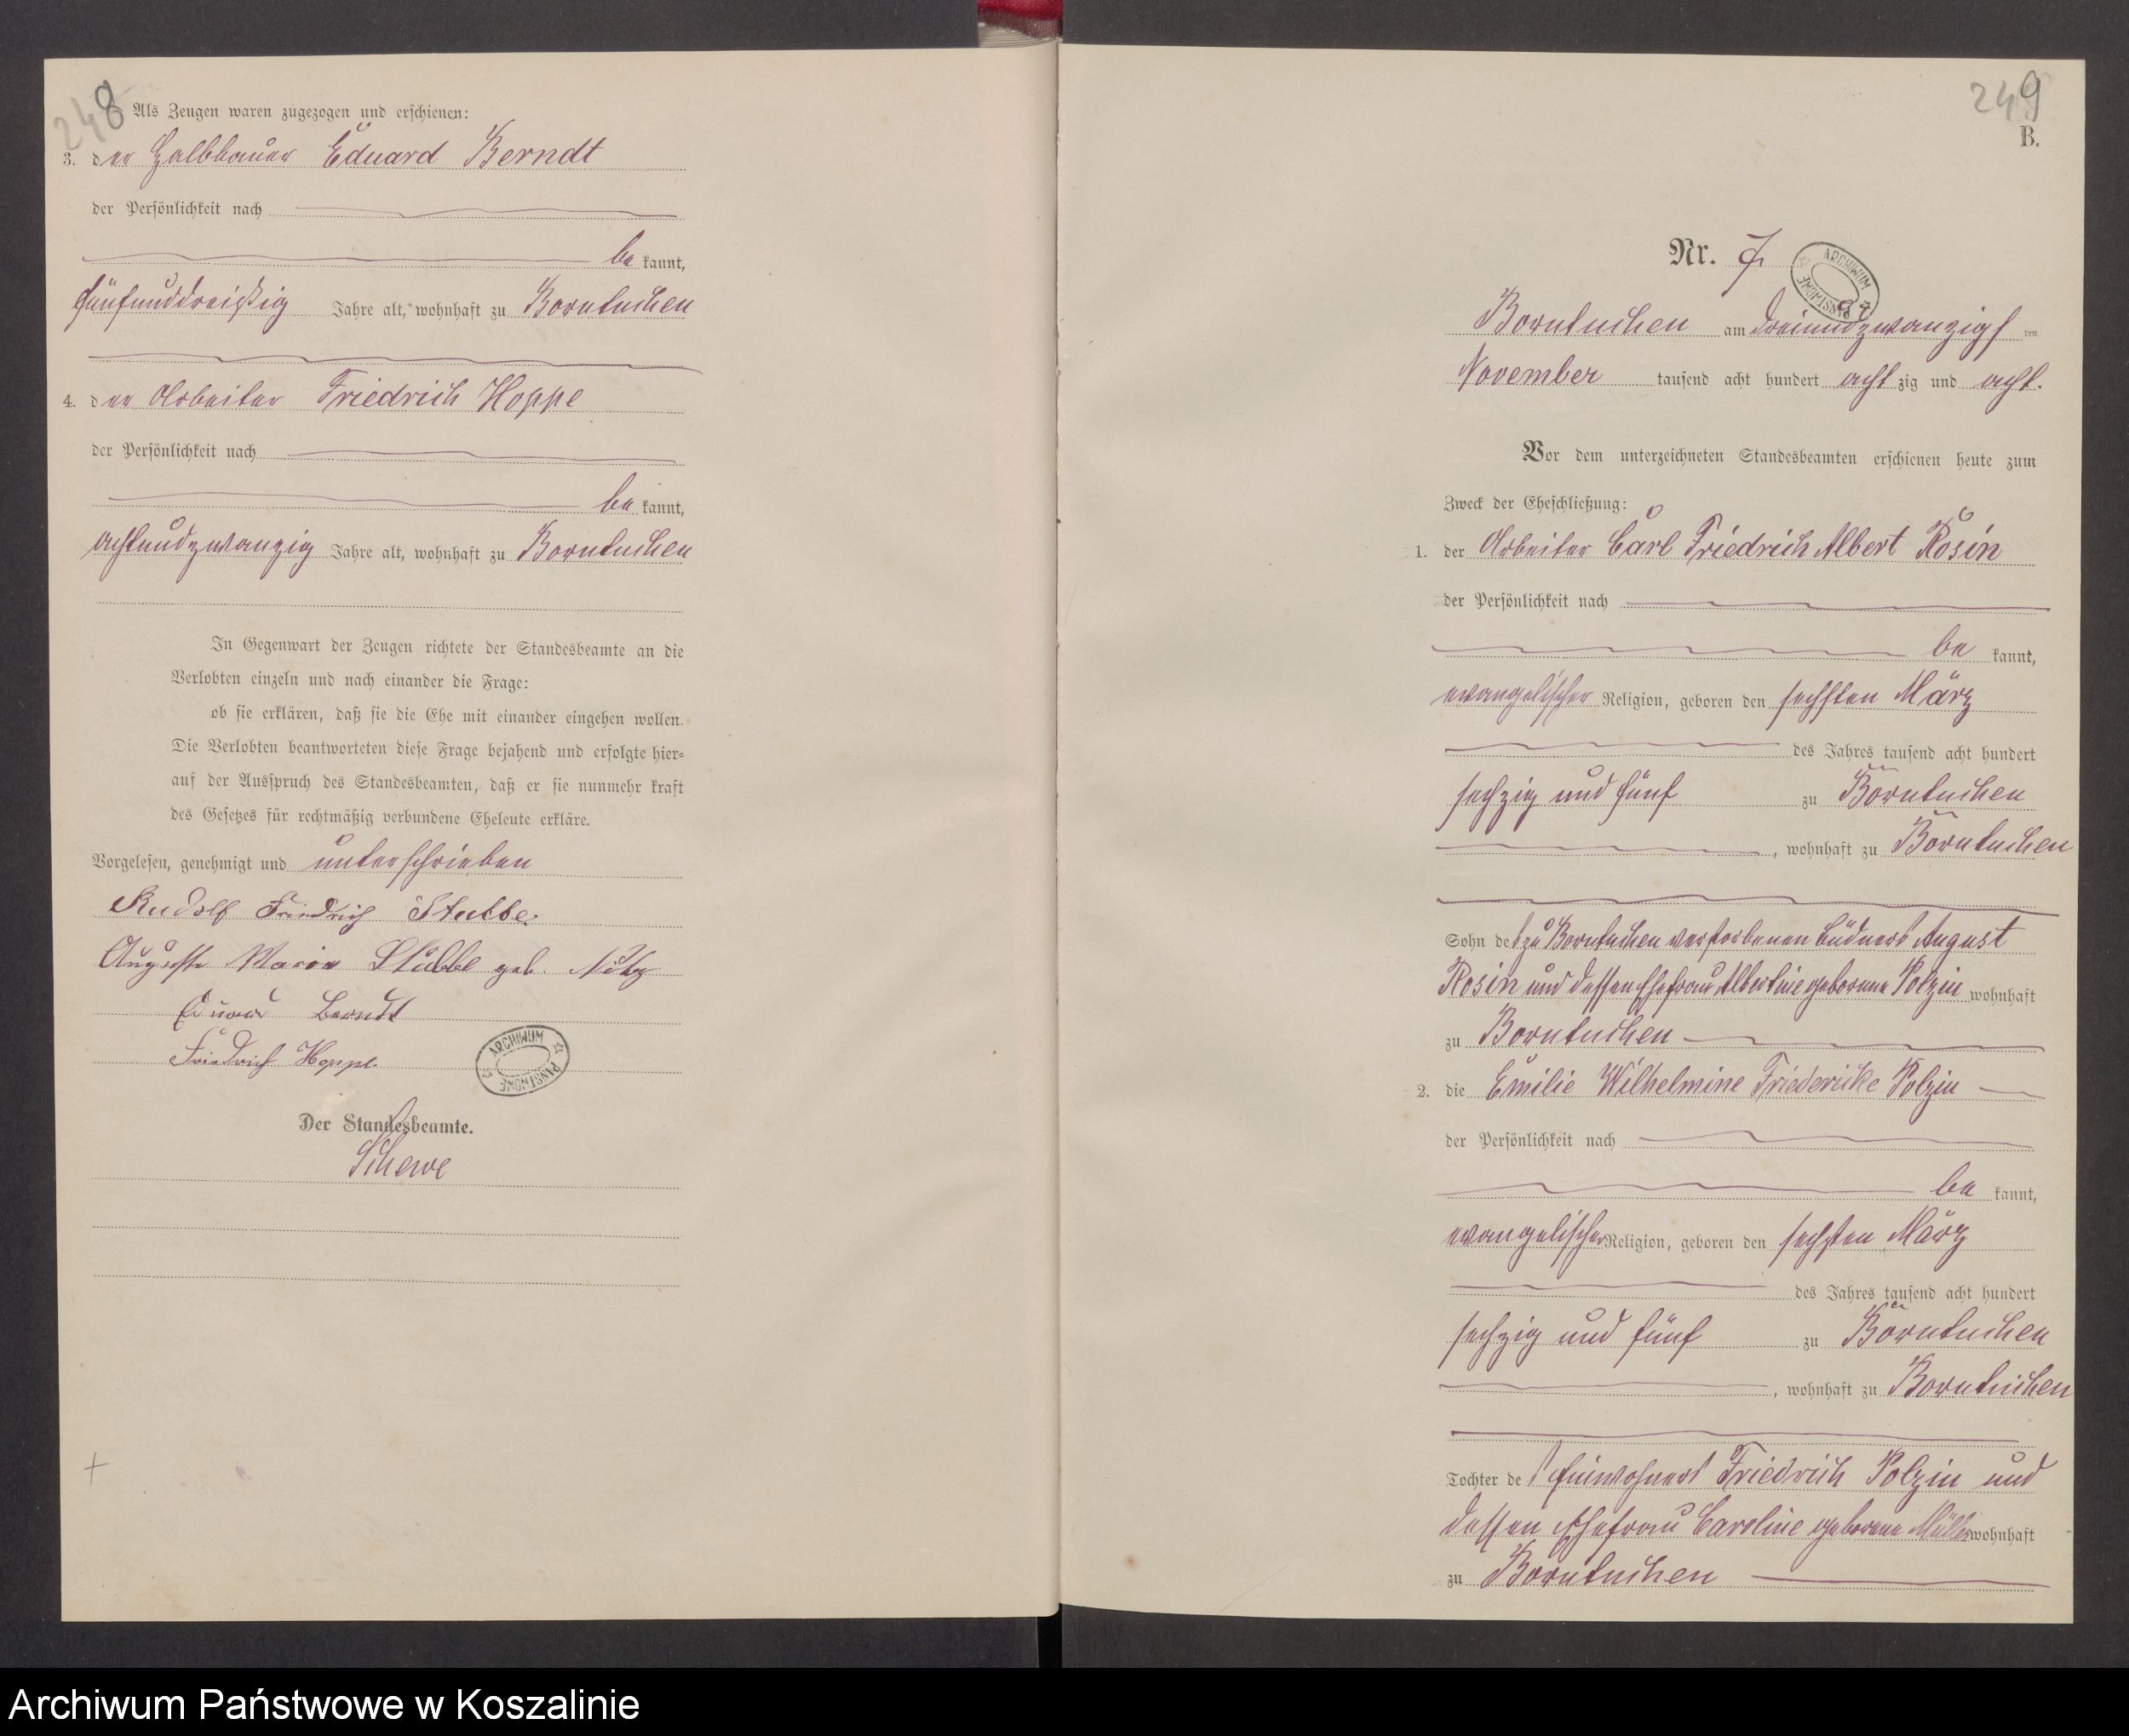 248
Als Zeugen waren zugezogen und erschienen:
3. der Halbbauer Eduard Berndt
der Persönlichkeit nach
be kannt,
fünfunddreißig Jahre alt, wohnhaft zu Borntuchen
4. der Arbeiter Friedrich Hoppe
der Persönlichkeit nach
be kannt,
achtundzwanzig Jahre alt, wohnhaft zu Borntuchen
In Gegenwart der Zeugen richtete der Standesbeamte an die
Verlobten einzeln und nach einander die Frage:
ob sie erklären, daß sie die Ehe mit einander eingehen wollen.
Die Verlobten beantworteten diese Frage bejahend und erfolgte hier-
auf der Ausspruch des Standesbeamten, daß er sie nunmehr kraft
des Gesetzes für rechtmäßig verbundene Eheleute erkläre.
Vorgelesen, genehmigt und unterschrieben
Rudolf Friedrich Stubbe.
Auguste Marie Stubbe geb.
Eduard Berndt
Friedrich Hoppe.
ARCHIWUM PAŃSTWOWE
Der Standesbeamte.
Schewe
249
B.
Nr. 7.
ARCHIWUM PAŃSTWOWE
Borntuchen am dreiundzwanzigs ten
November tausend acht hundert acht zig und acht.
Vor dem unterzeichneten Standesbeamten erschienen heute zum
Zweck der Eheschließung:
1. der Arbeiter Carl Friedrich Albert Rosin
der Persönlichkeit nach
be kannt,
evangelischer Religion, geboren den sechsten März
des Jahres tausend acht hundert
sechzig und fünf zu Borntuchen
, wohnhaft zu Borntuchen
Sohn des zu Borntuchen verstorbenen Büdners August
Rosin und dessen Ehefrau Albertine geborene Polzin wohnhaft
zu Borntuchen
2. die Emilie Wilhelmine Friedericke Polzin
der Persönlichkeit nach
be kannt,
evangelischer Religion, geboren den sechsten März
des Jahres tausend acht hundert
sechzig und fünf zu Borntuchen
, wohnhaft zu Borntuchen
Tochter des Einwohners Friedrich Polzin und
dessen Ehefrau Caroline geborene Müller wohnhaft
zu Borntuchen
Archiwum Państwowe w Koszalinie